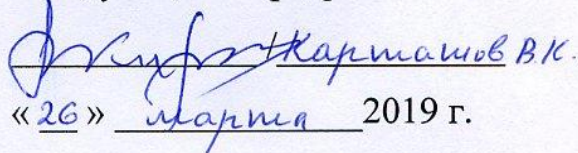 / Карташов В.К.
«26» марта 2019 г.